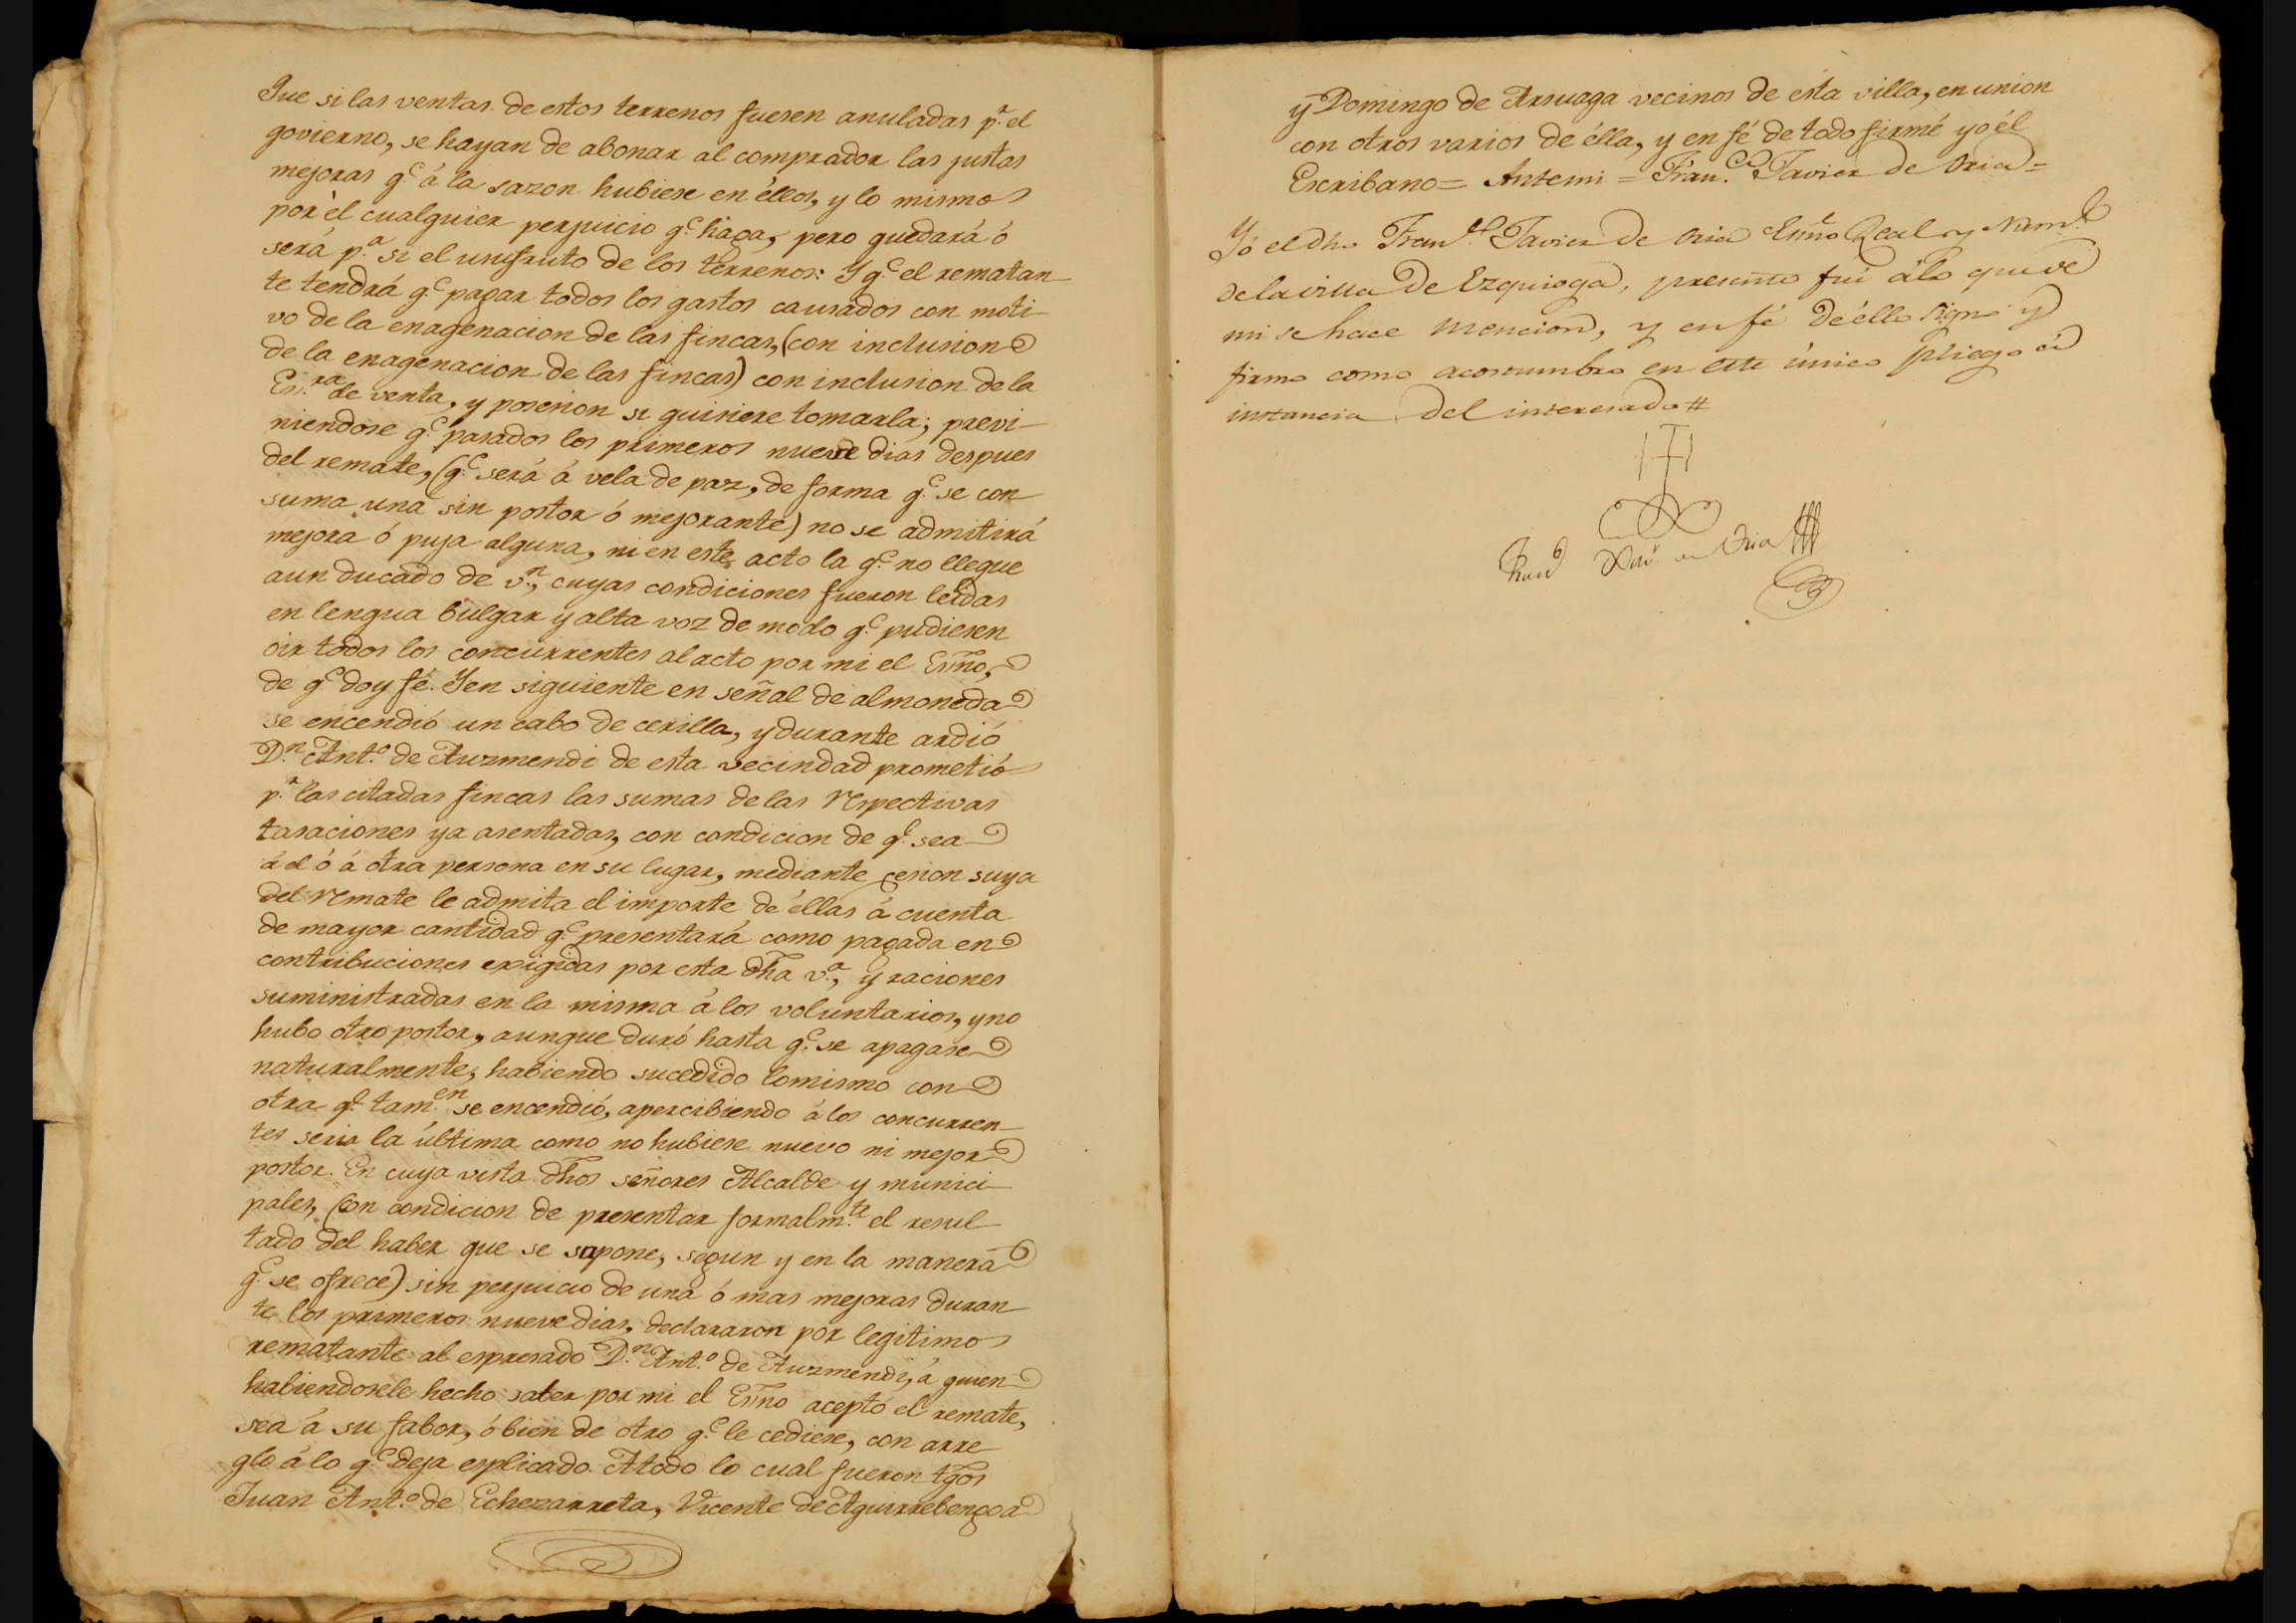 Que si las ventas de estos terrenos fuesen anuladas p.r el
govierno, se hayan de abonar al comprador las justas
mejoras q.e á la sazon hubiese en éllos, y lo mismo
por él cualquier perjuicio q.e haga, pero quedará ó
será p.a si el usufruto de los terrenos: Y q.e el rematan-
te tendrá q.e pagar todos los gastos causados con moti-
vo de la enagenacion de las fincas, (con inclusion
de la enagenacion de las fincas) con inclusion de la
Es.ra de venta, y posesion si quisiere tomarla; previ-
niendose q.e pasados los primeros nueve dias despues
del remate, (q.e será á vela de paz, de forma q.e se con-
suma una sin postor ó mejorante) no se admitirá
mejora ó puja alguna, ni en este acto la q.e no llegue
aun ducado de v.n, cuyas condiciones fueron leidas
en lengua bulgar y alta voz de modo q.e pudiesen
oir todos los concurrentes al acto por mi el Esno,
de q.e doy fé. Y en siguiente en señal de almoneda
se encendió un cabo de cerilla, y durante ardió
D.n Ant.o de Auzmendi de esta vecindad prometió
p.r las citadas fincas las sumas de las respectivas
tasaciones ya asentadas, con condicion de q.e sea
á el ó á otra persona en su lugar, mediante cesion suya
del remate le admita el importe de éllas á cuenta
de mayor cantidad q.e presentará como pagada en
contribuciones exigidas por esta dha v.a, y raciones
suministradas en la misma á los voluntarios, y no
hubo otro postor, aunque duró hasta q.e se apagase
naturalmente, habiendo sucedido lo mismo con
otra q.e tam.en se encendió, apercibiendo á los concurren-
tes seria la última como no hubiese nuevo ni mejor
postor. En cuya vista dhos señores Alcalde y munici-
pales, (con condicion de presentar formalm.te el resul-
tado del haber que se supone, segun y en la manera
q.e se ofrece) sin perjuicio de una ó mas mejoras duran-
te los primeros nueve dias, declararon por legitimo
rematante al espresado D.n Ant.o de Auzmendi, á quien
habiendosele hecho saber por mi el Esno aceptó el remate,
sea á su fabor, ó bien de otro q.e le cediese, con arre-
glo á lo q.e deja esplicado. A todo lo cual fueron tgos
Juan Ant.o de Echezarreta, Vicente de Aguirrebengoa
y Domingo de Arsuaga vecinos de esta villa, en union
con otros varios de élla, y en fé de todo firmé yo él
Escribano = Antemi = Fran.co Javier de Oria =
Yó el dho Fran.co Javier de Oria Esno Real y Num.l
de la villa de Ezquioga, presente fuí á lo que de
mi se hace mencion, y en fé de éllo signo y
firmo como acostumbro en este único pliego á
instancia del interesado #
Fran.co Xav.r de Oria